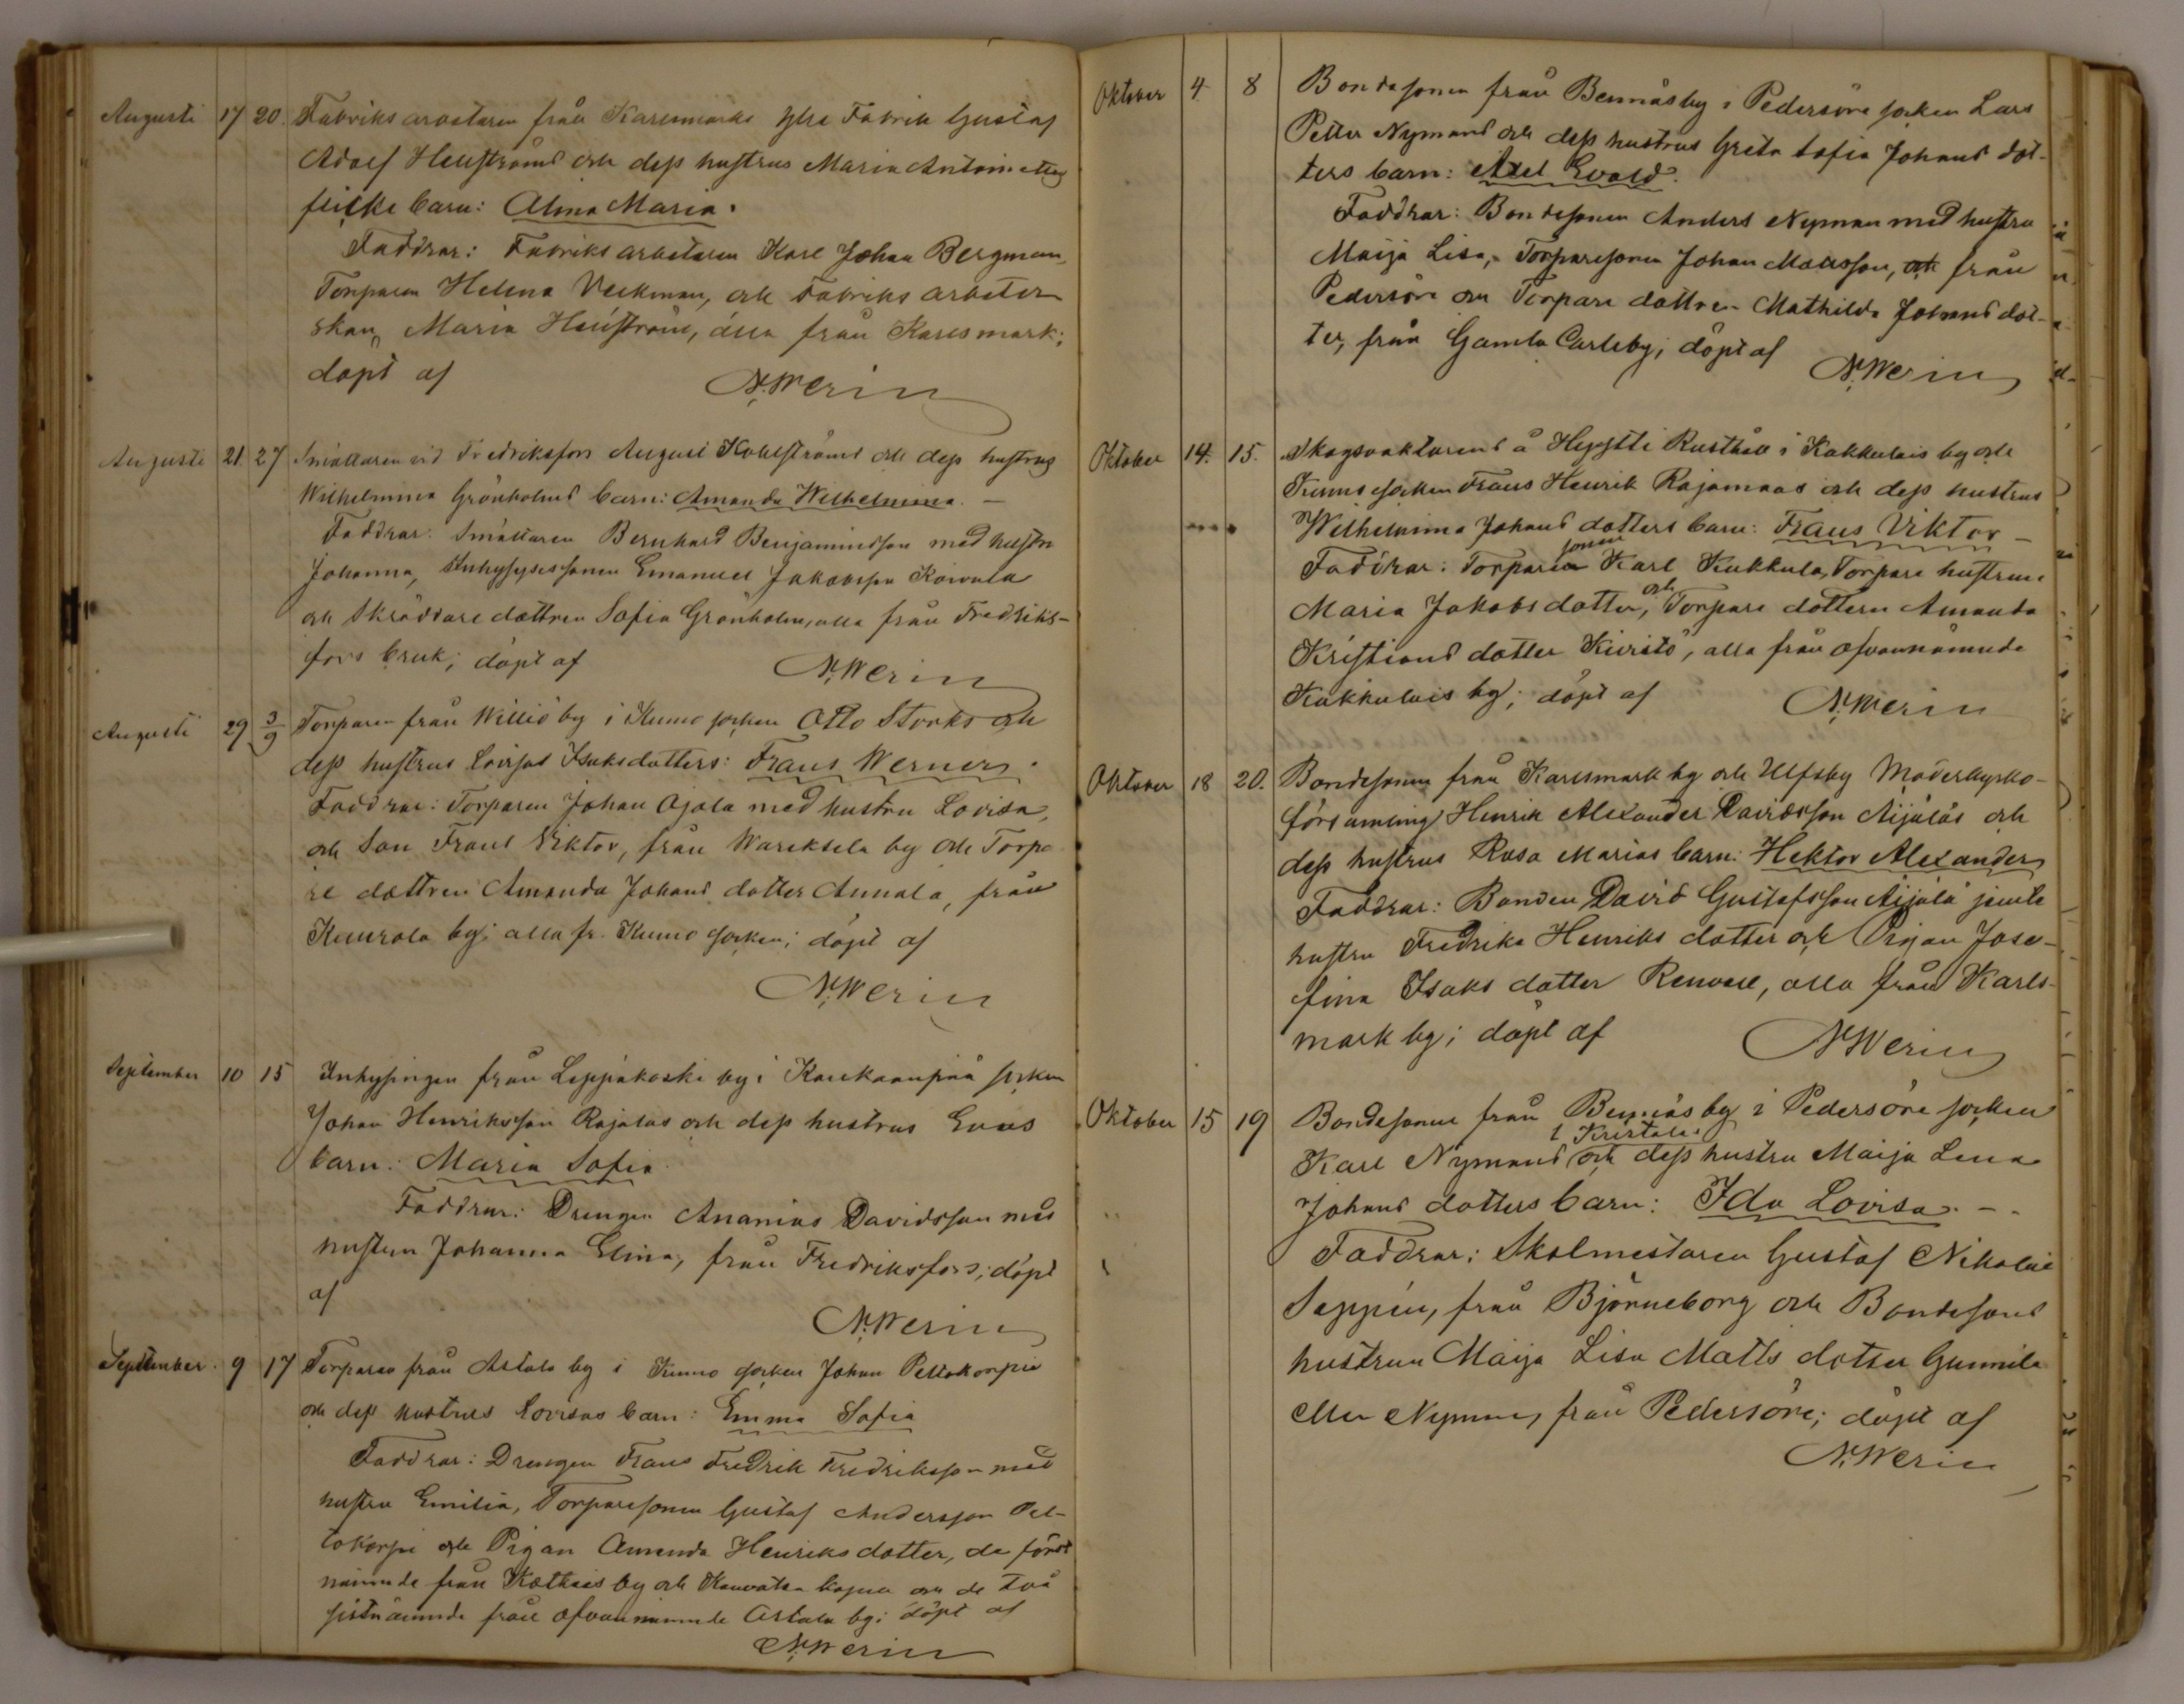 Augusti 17 20. Fabriksarbetaren från Karlsmarks Ylle Fabrik Gustaf
Adolf Hellströms och dess hustrus Maria Antoinettes
barn: Alma Maria.
Faddrar: Fabriksarbetaren Karl Johan Bergman,
Torparen Helena Veckman, och Fabriks arbeter
skan, Maria Hellström, alla från Karlsmark;
döpt af N. Werin
Augusti 21. 27 Smältaren vid Fredriksfors August Kohlströms och dess hustrus
Wilhelmina Grönholms barn: Amanda Wilhelmina. —
Faddrar: Smältaren Bernhard Benjaminsson med hustru
Johanna, Inhysessonen Emanuel Jakobsson Koivula
och Skräddare dottren Sofia Grönholm, alla från Fredriks-
fors bruk; döpt af N. Werin
Augusti 29 3/9 Torparen från Williö by i Kumo socken Otto Storks och
dess hustrus Lovisas Isaksdotters: Frans Werner.
Faddrar: Torparen Johan Ojala med hustru Lovisa,
och Son Frans Viktor, från Wareksela by och Torpa
re dottren Amanda Johans dotter Annala, från
by; alla fr. Kumo socken; döpt af
N. Werin
September 10 15 Inhysingen från Leppäkoski by i Kankaanpää socken
Johan Henriksson Rajalas och dess hustrus Evas
barn: Maria Sofia.
Faddrar: Drengen Ananias Davidsson med
hustru Johanna Elina, från Fredriksfors; döpt
af
N. Werin
September. 9 17 Torparen från Astala by i Kumo socken Johan Peltokorpis
och dess hustrus Lovisas barn: Emma Sofia
Faddrar: Drengen Frans Fredrik Fredriksson med
hustru Emilia, Torparesonen Gustaf Andersson Pel-
tokorpi och Pigan Amanda Henriks dotter, de först
nämnde från by och Kauvatsa kapell och de två
sistnämnde från ofvannämnde Astala by; döpt af
N. Werin
Oktober 4 8 Bondesonen från Bennäs by i Pedersöre socken Lars
Petter Nymans och dess hustrus Greta Sofia Johans dot-
ters barn: Axel Evald.
Faddrar: Bondesonen Anders Nyman med hustru
Maija Lisa, Torparesonen Johan Matsson, och från
Pedersöre och Torpare dottren Mathilda Johans dot-
ter, från Gamla Carleby; döpt af
N. Werin
Oktober 14. 15. Skogsvaktarens å Hyysti Rusthåll i Kakkulais by och
Kumo socken Frans Henrik Rajamaas och dess hustrus
Wilhelmina Johans dotters barn: Frans Viktor —
sonen
Faddrar: Torparen Karl Kukkula, Torpare hustrun
och
Maria Jakobs dotter, Torpare dottern Amanda
Kristians dotter Kivistö, alla från ofvannämnde
Kakkulais by; döpt af N. Werin
Oktober 18 20. Bondesonen från Karlsmark by och Ulfsby Moderkyrko-
församling Henrik Alexander Davidsson Äijäläs och
dess hustrus Rosa Marias barn: Hektor Alexander
Faddrar: Bonden David Gustafsson Äijälä jemte
hustru Fredrika Henriks dotter och Pigan Jose-
fina Isaks dotter Renvall, alla från Karls-
mark by; döpt af N. Werin
Oktober 15 19 Bondesonen från Bennäs by i Pedersöre socken
Karl Nymans och dess hustru Maija Lena
Johans dotters barn: Ida Lovisa. - -
Faddrar: Skolmestaren Gustaf Nikolai
Seppén, från Björneborg och Bondesons
hustrun Maija Lisa Matts dotter Gunnila
eller Nyman, från Pedersöre; döpt af
N. Werin